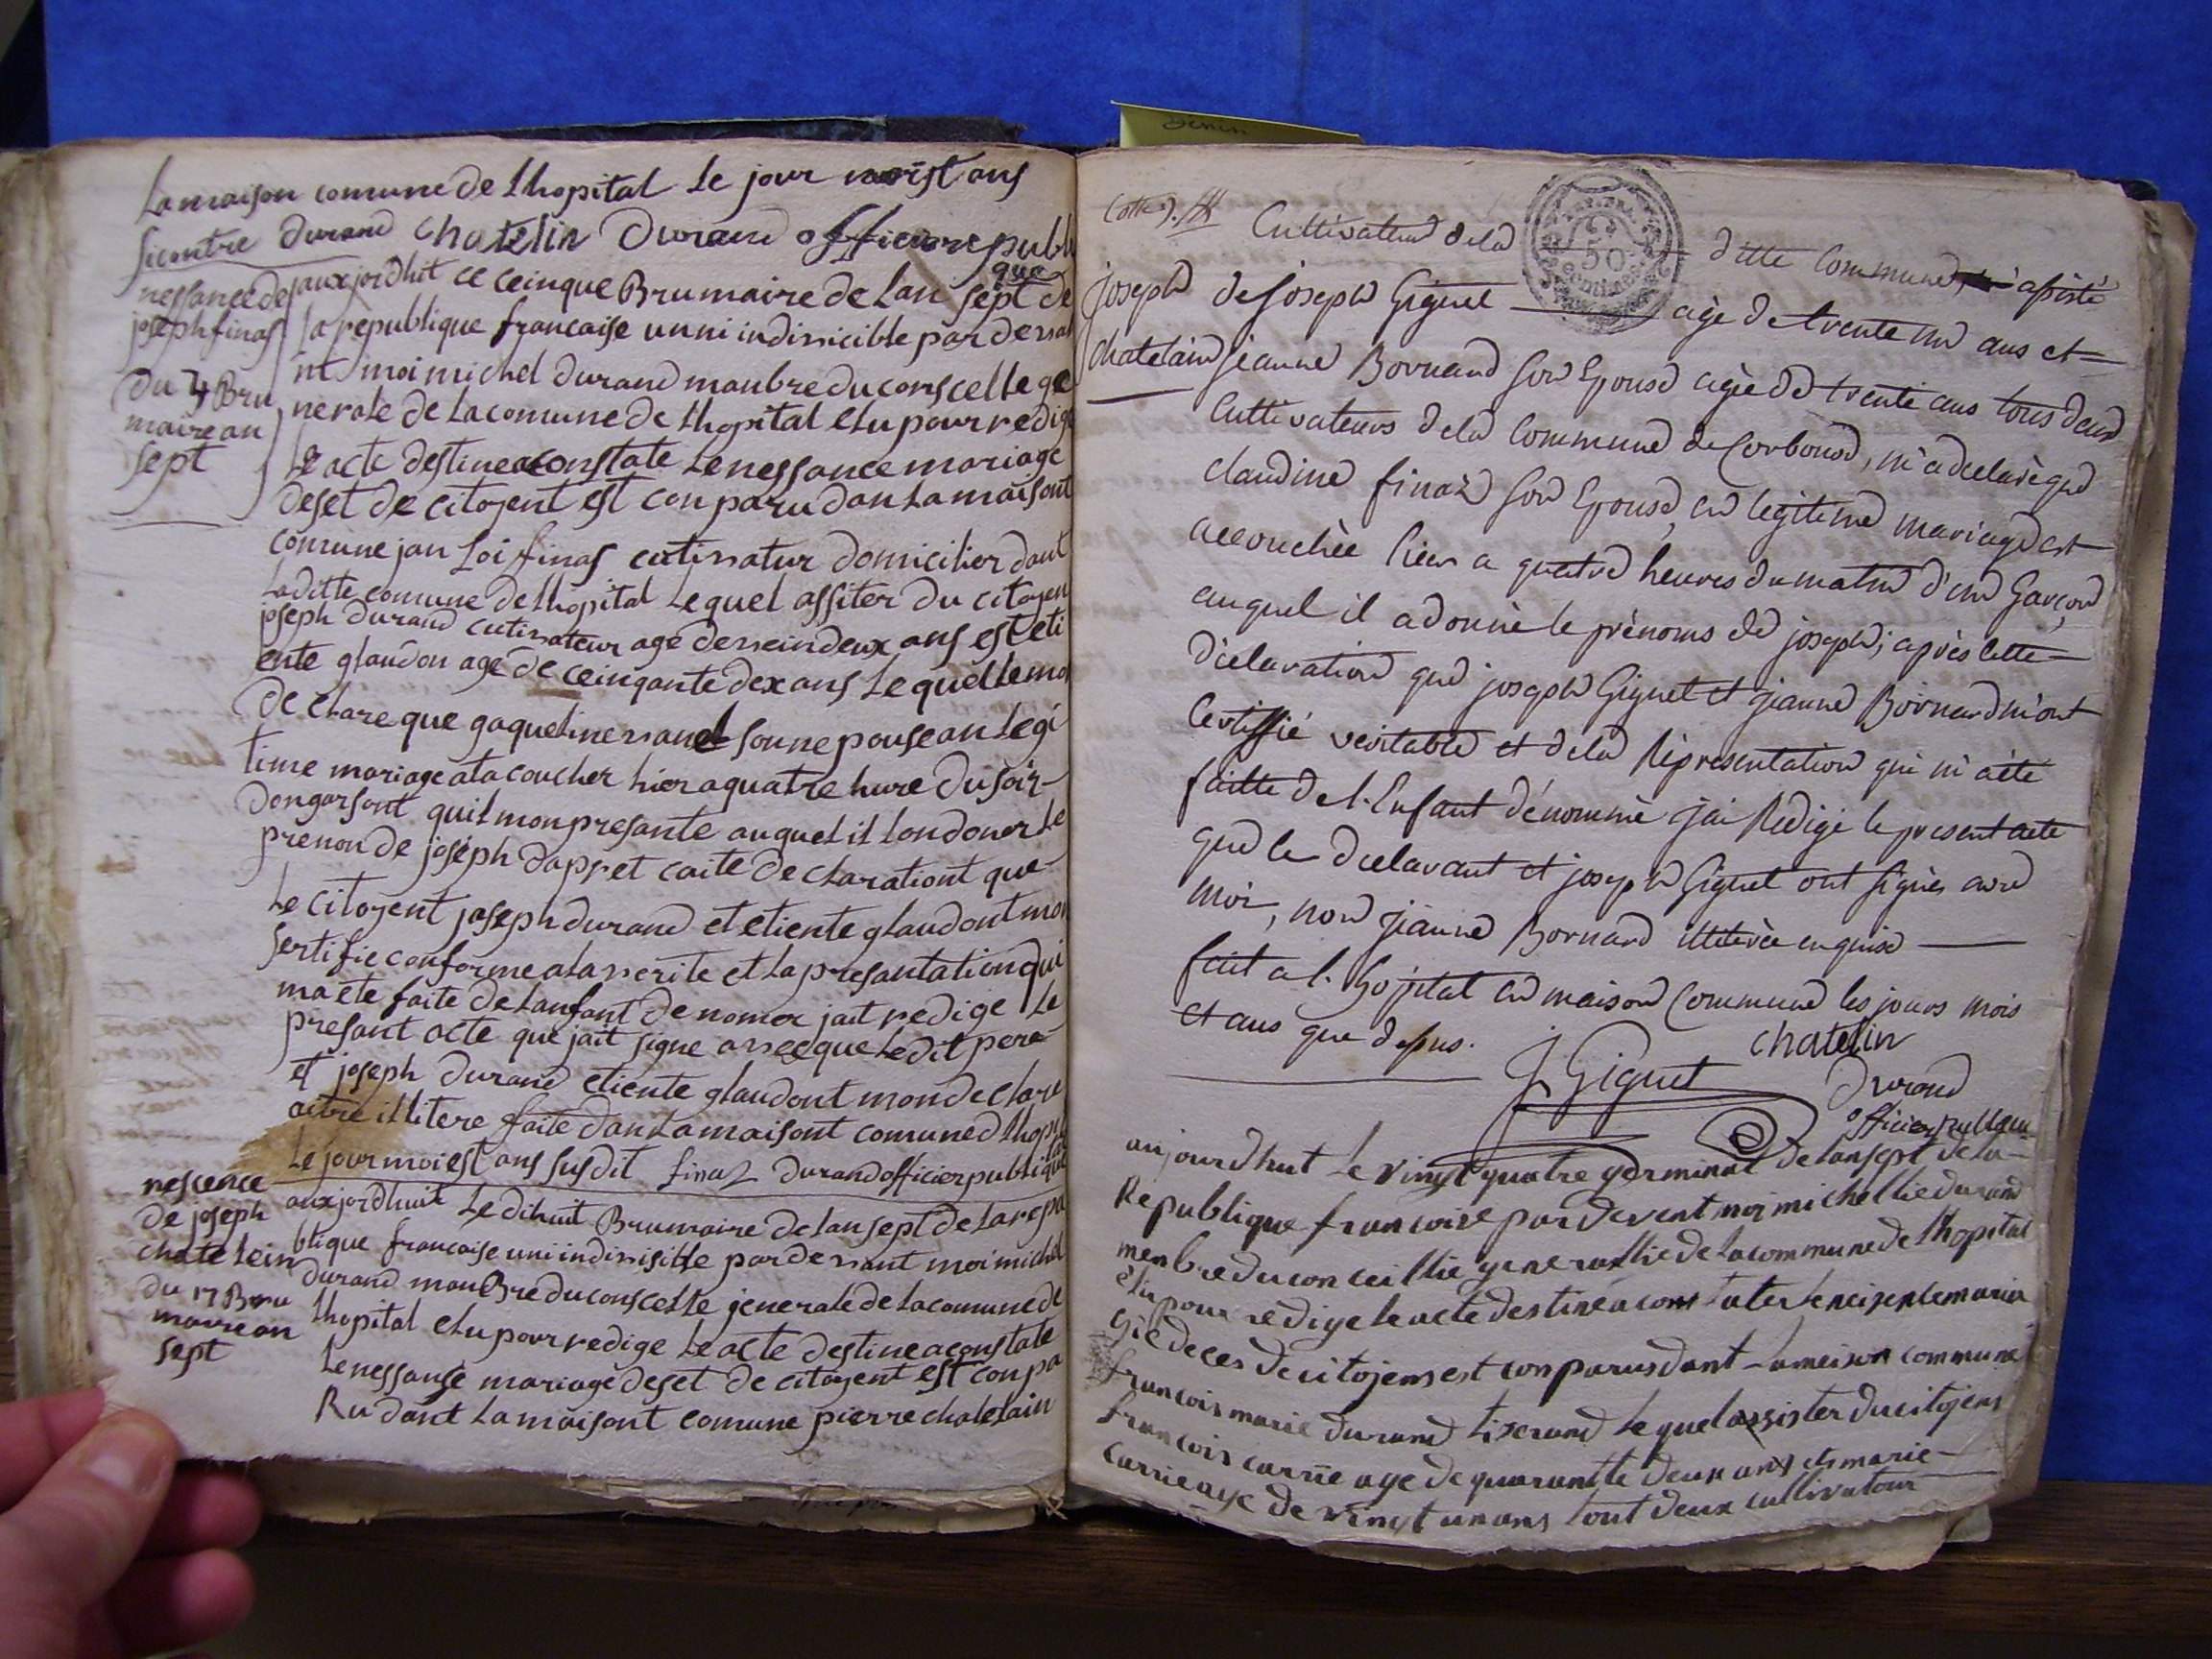 La maison comune De Lhopital Le jour moist ans
Sicontre Durand Chatelin Durand officiere publi
que
nessance de
joseph finas
Du 4 Bru
maire an
sept
auxjordhit ce ceinque Brumaire de Lan sept de
la republique francaise unni indivicible par deva
nt moi michel Durand manbre du conscelle ge
nerale de La comune de Lhopital elu pour redige
Le acte destine a constate Le nessance mariage
deset de citoyent est conparu dan La maisont
comune jan Loi finas cutivatur domicilier dant
Laditte comune de Lhopital Lequel assiter du citoyen
joseph Durand cutivateur age de vein deux ans est eti
ente glaudon age de ceinqante dex ans Le quelle mo
De Clare que gaqueline vianet sounepouse an Legi
time mariage at acoucher hier a quatre hure Du soir
Dongarsont quil mon presante auquel il lon doner Le
prenon de joséph Dapret caite De clarationt que
Le citoyent joseph durand et etiente glaudont mon
sertifie conforme ala verite et La presantation qui
ma ete faite de Lanfant De nomer jait redige Le
presant acte que jait signe avecque Ledit pere
et joseph Durand etiente glaudont mon de clare
aitre illitere faite Dan La maisont comune d Lhopi
tal
Le jour moi est ans susdit finaz Durand officier publique
nescence
De joseph
chatelein
du 17 Bru
maire an
sept
auxjordhuit Le dihuit Brumaire de Lan sept de La repu
blique francaise uni indivisible par devant moi michel
Durand manBre du conscelle jenerale de La comune de
Lhopital elu pour redige Le acte destine a constate
Le nessanse mariage deset de citoyent est conpa
Ru dant La maisont comune pierre chatelain
Joseph
Chatelain
50
Cultivateur de la ditte Commune, assisté
de Joseph Giguet agé de trente un ans et
jeanne Bornand son Epouse agée de trente ans tous deux
Cultivateurs de la Commune de Corbonod, m'a declaré que
claudine finaz son Epouse, en legitime mariage est
accouchée hier a quatre heures du matin d'un Garçon
auquel il a donné le prénoms de joseph; après cette
déclaration que joseph Giguet et jeanne Bornand m'ont
Certiffié veritable et de la Répresentation qui m'a été
faitte de l'Enfant dénommé j'ai Redigé le present acte
que le declarant et joseph Giguet ont signés avec
moi, non jeanne Bornand illiterée enquise
fait a l'Hopital en maison Commune les jours mois
et ans que dessus.
chatelin
J Giguet Durand
officier publique
aujourdhut Le vingt quatre germinat de Lan sept de La
Republique francoise par devent moi michellie durand
menbre du conceillie generallie de La commune de Lhopital
élu pour redige le acte destiné a constater Le neisence maria
gie deces de citojens est conparus dant La meison commune
francois marie Durand tixerand Le quel assister du citojens
francois carrie age de quarantte deux ans et marie
carrie age de vingt un ans tout deux cullivatour